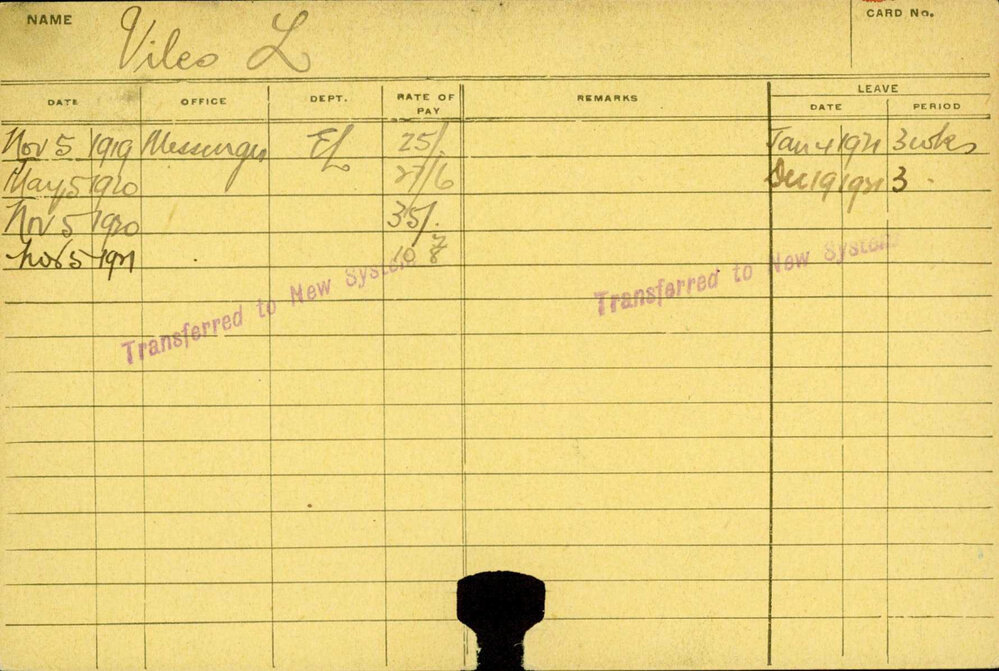 NAME Viles L CARD No.
DATE OFFICE DEPT. RATE OF PAY REMARKS LEAVE
DATE PERIOD
Nov 5 1919 Messenger EL 25/. Jan 4 1921 3 wks
May 5 1920 27/6 Dec 19 1921 3
Nov 5 1920 35/.
Nov 5 1921
Transferred to New System
Transferred to New System